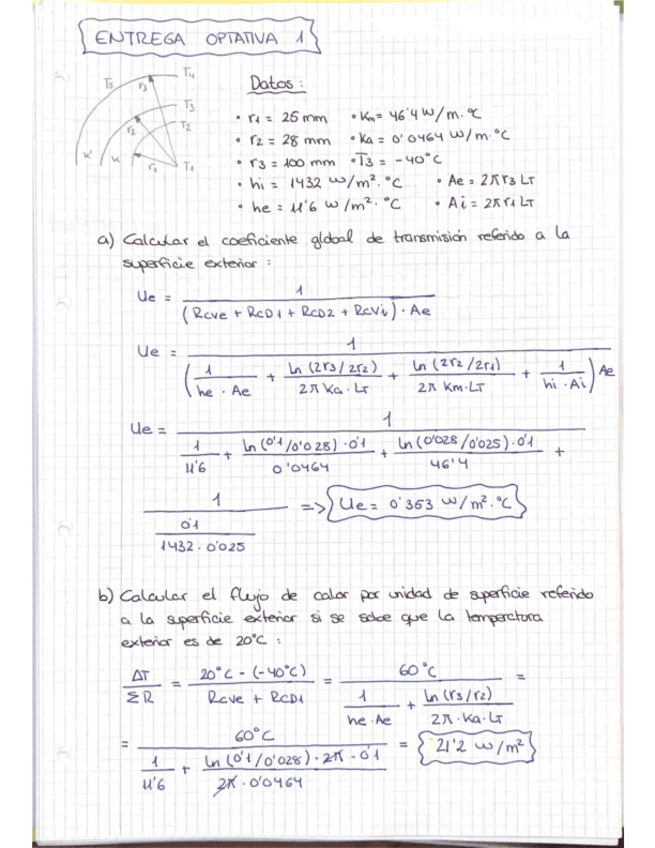 ENTREGA OPTATIVA 1
T5 T4
r3
T3
r2 T2
K' K r1 T1
Datos:
• r1 = 25 mm • Km = 46'4 W/m.°C
• r2 = 28 mm • Ka = 0'0464 W/m.°C
• r3 = 100 mm • T3 = -40°C
• hi = 1432 W/m².°C • Ae = 2πr3 LT
• he = 11'6 W/m².°C • Ai = 2πr1 LT
a) Calcular el coeficiente global de transmisión referido a la
superficie exterior:
Ue = 1 / (Rcve + RCD1 + RCD2 + RCVi) · Ae
Ue = 1 / (1 / he · Ae + Ln (2r3/2r2) / 2π Ka · LT + Ln (2r2/2r1) / 2π Km·LT + 1 / hi · Ai) Ae
Ue = 1 / 1 / 11'6 + Ln (0'1/0'028) · 0'1 / 0'0464 + Ln (0'028/0'025) · 0'1 / 46'4 +
1 / 0'1 / 1432 · 0'025 => Ue = 0'353 W/m².°C
b) Calcular el flujo de calor por unidad de superficie referido
a la superficie exterior si se sabe que la temperatura
exterior es de 20°C:
ΔT / ΣR = 20°C - (-40°C) / Rcve + RCD1 = 60°C / 1 / he·Ae + Ln (r3/r2) / 2π·Ka·LT =
= 60°C / 1 / 11'6 + Ln (0'1/0'028) · 2π · 0'1 / 2π · 0'0464 = 21'2 W/m²